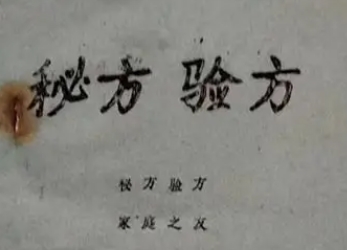 秘方 验方
秘方验方
家庭之友